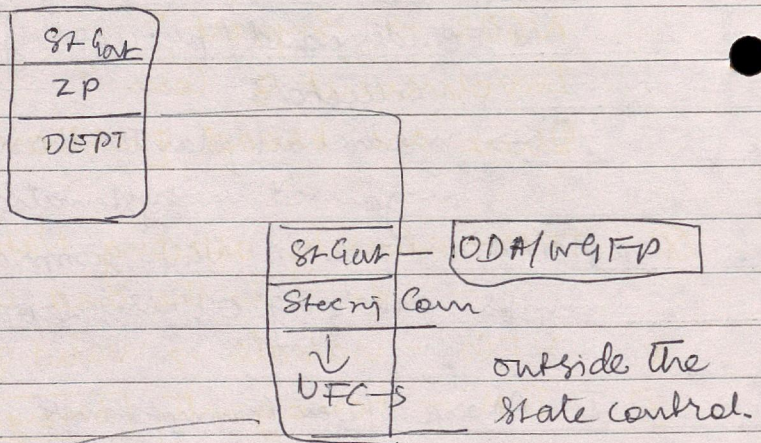 St Govt
ZP
DEPT
St Govt — ODA/WGFP
Steeri Com
↓
VFC-s
outside the
state control.